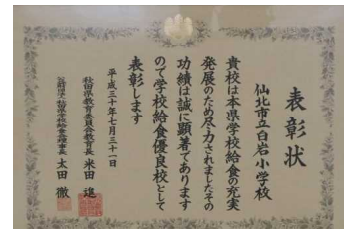 表彰状
仙北市立白岩小学校
貴校は本県学校給食の充実
発展のため尽力されましたその
功績は誠に顕著であります
ので学校給食優良校として
表彰します
平成三十年七月三十一日
秋田県教育委員会教育長 米田 進
太田 徹